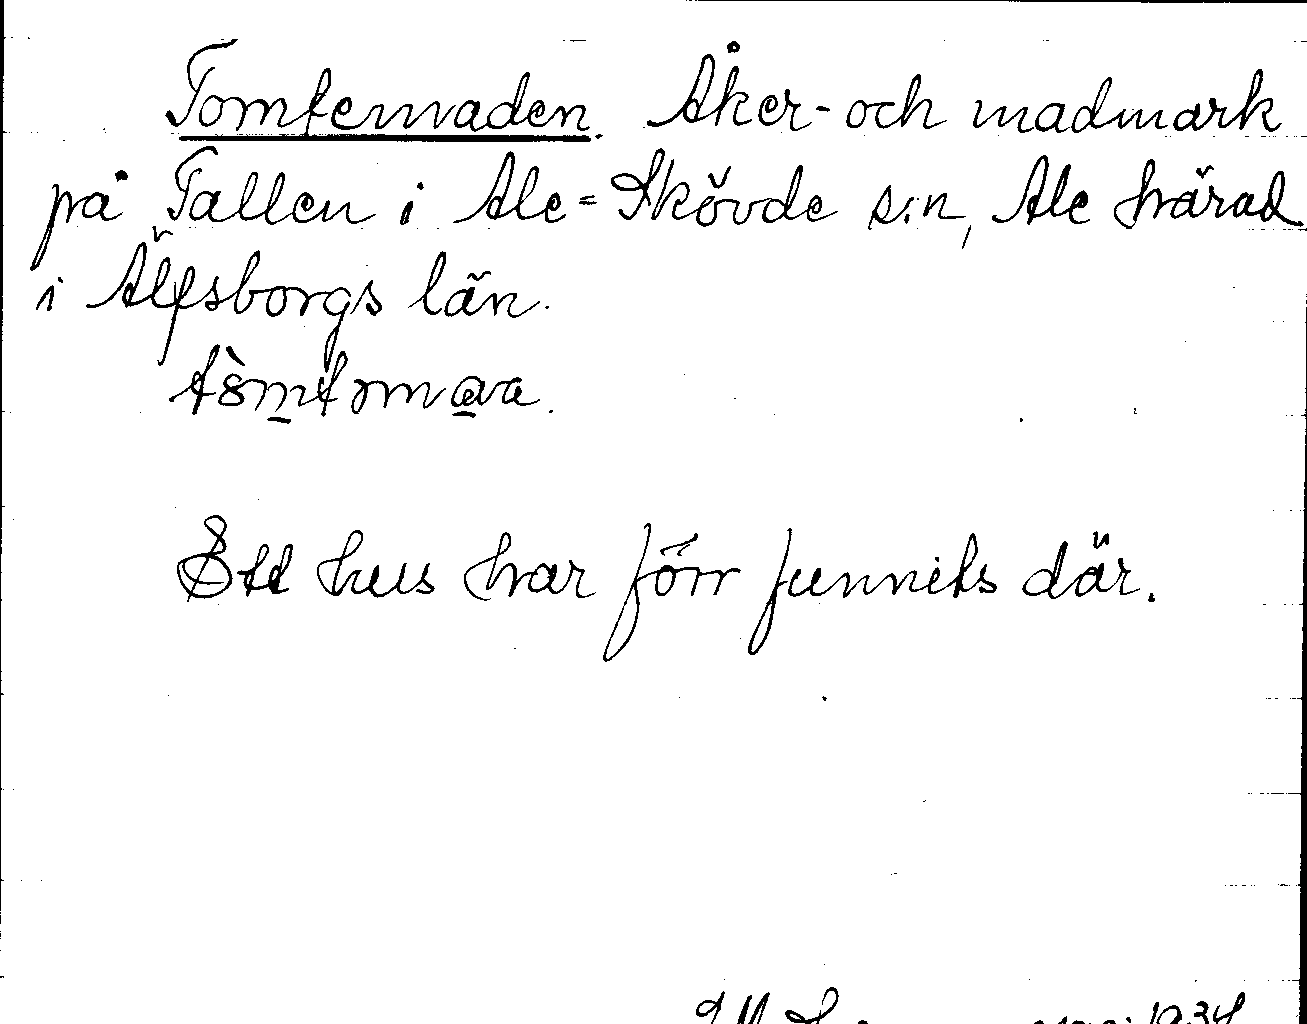 Tomtemaden. Åker- och madmark
på Tallen i Ale-Skövde s:n, Ale härad
i Älfsborgs län.
Ett hus har förr funnits där.
1934